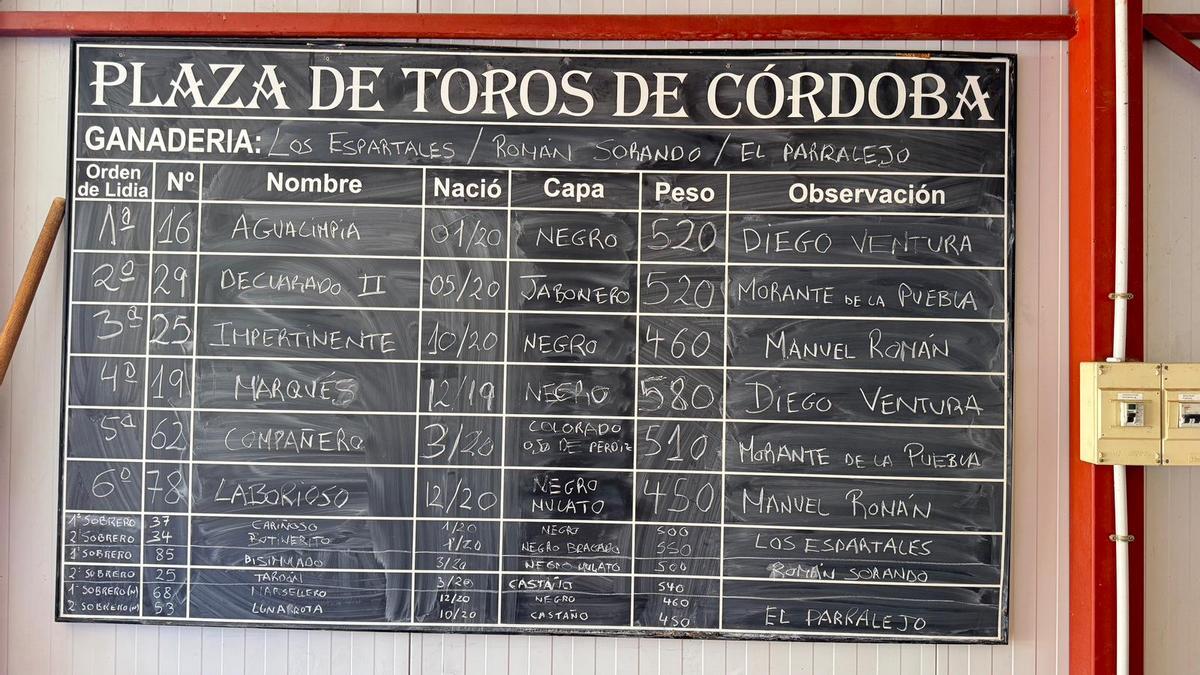 PLAZA DE TOROS DE CÓRDOBA
GANADERIA: LOS ESPARTALES / ROMÁN SORANDO / EL PARRALEJO
Orden de Lidia Nº Nombre Nació Capa Peso Observación
1ª 16 AGUALIMPIA 01/20 NEGRO 520 DIEGO VENTURA
2º 29 DECLARADO II 05/20 JABONERO 520 MORANTE DE LA PUEBLA
3ª 25 IMPERTINENTE 10/20 NEGRO 460 MANUEL ROMÁN
4º 19 MARQUÉS 12/19 NEGRO 580 DIEGO VENTURA
5ª 62 COMPAÑERO 3/20 COLORADO OJO DE PERDIZ 510 MORANTE DE LA PUEBLA
6º 78 LABORIOSO 12/20 NEGRO MULATO 450 MANUEL ROMÁN
1º SOBRERO 37 CARIÑOSO 1/20 NEGRO 500
2º SOBRERO 34 BOTINERITO 1/20 NEGRO BRAGADO 550 LOS ESPARTALES
1º SOBRERO 85 BISIMULADO 3/20 NEGRO MULATO 500
2º SOBRERO 25 3/20 CASTAÑO 540 ROMÁN SORANDO
1º SOBRERO (N) 68 MARSELLERO 12/20 NEGRO 460
2º SOBRERO (N) 53 LUNARROTA 10/20 CASTAÑO 450 EL PARRALEJO